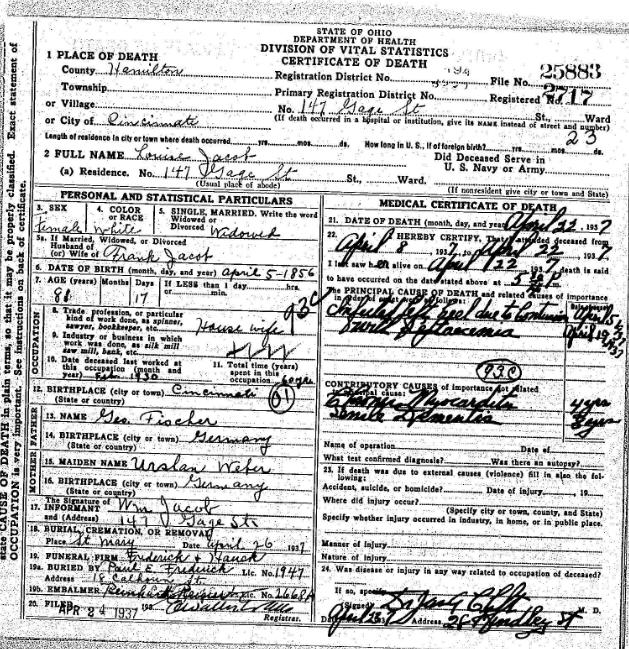 STATE OF OHIO
DEPARTMENT OF HEALTH
DIVISION OF VITAL STATISTICS
CERTIFICATE OF DEATH
1 PLACE OF DEATH
County Hamilton
Registration District No. 494
File No. 25883
Township
Primary Registration District No.
Registered No. 2717
or Village
No. 147 Gage St St., Ward
or City of Cincinnati
(If death occurred in a hospital or institution, give its NAME instead of street and number)
Length of residence in city or town where death occurred yrs. mos. ds. How long in U. S., if of foreign birth? yrs. mos. ds.
23
2 FULL NAME Louise Jacob
Did Deceased Serve in
U. S. Navy or Army
(a) Residence. No. 147 Gage St St., Ward.
(Usual place of abode)
(If nonresident give city or town and State)
PERSONAL AND STATISTICAL PARTICULARS
3. SEX
Female
4. COLOR
or RACE
White
5. SINGLE, MARRIED. Write the word
Widowed or
Divorced
Widowed
5a. If Married, Widowed, or Divorced
Husband of
(or) Wife of Frank Jacob
6. DATE OF BIRTH (month, day, and year) April 5-1856
7. AGE (years) Months Days If LESS than 1 day hrs.
or min.
81 17
93c
OCCUPATION
8. Trade, profession, or particular
kind of work done, as spinner,
sawyer, bookkeeper, etc. House wife
9. Industry or business in which
work was done, as silk mill
saw mill, bank, etc.
10. Date deceased last worked at
this occupation (month and
year) Feb 1930
11. Total time (years)
spent in this
occupation 60 yrs
12. BIRTHPLACE (city or town) Cincinnati
(State or country)
01
FATHER
13. NAME Geo. Fischer
14. BIRTHPLACE (city or town) Germany
(State or country)
MOTHER
15. MAIDEN NAME Urslan Weber
16. BIRTHPLACE (city or town) Germany
(State or country)
The Signature of
17. INFORMANT Wm Jacob
and (Address) 147 Gage St
18. BURIAL, CREMATION, OR REMOVAL
Place St Mary Date April 26 1937
19. FUNERAL FIRM Frederick & Hauck
19a. BURIED BY Paul E. Frederick Lic. No. 1947
Address 18 Calhoun St
19b. EMBALMER Lic. No. 2668A
20. FILED APR 24 1937 193
Registrar.
MEDICAL CERTIFICATE OF DEATH
21. DATE OF DEATH (month, day, and year) April 22, 1937
22. I HEREBY CERTIFY, That I attended deceased from
April 8 1937, to April 22 1937
I last saw her alive on April 22 1937 death is said
to have occurred on the date stated above at 5
The PRINCIPAL CAUSE OF DEATH and related causes of importance
in order of onset were as follows:
Infected left heel due to
93C
CONTRIBUTORY CAUSES of importance not related
to principal cause:
Chronic Myocarditis 4 yrs
Senile Dementia
Name of operation Date of
What test confirmed diagnosis? Was there an autopsy?
23. If death was due to external causes (violence) fill in also the following:
Accident, suicide, or homicide? Date of injury 19
Where did injury occur?
(Specify city or town, county, and State)
Specify whether injury occurred in industry, in home, or in public place.
Manner of Injury
Nature of Injury
24. Was disease or injury in any way related to occupation of deceased?
If so, specify
(Signed) M. D.
Date April 23 Address Findley St
state CAUSE OF DEATH in plain terms, so that it may be properly classified. Exact statement of
OCCUPATION is very important. See instructions on back of certificate.